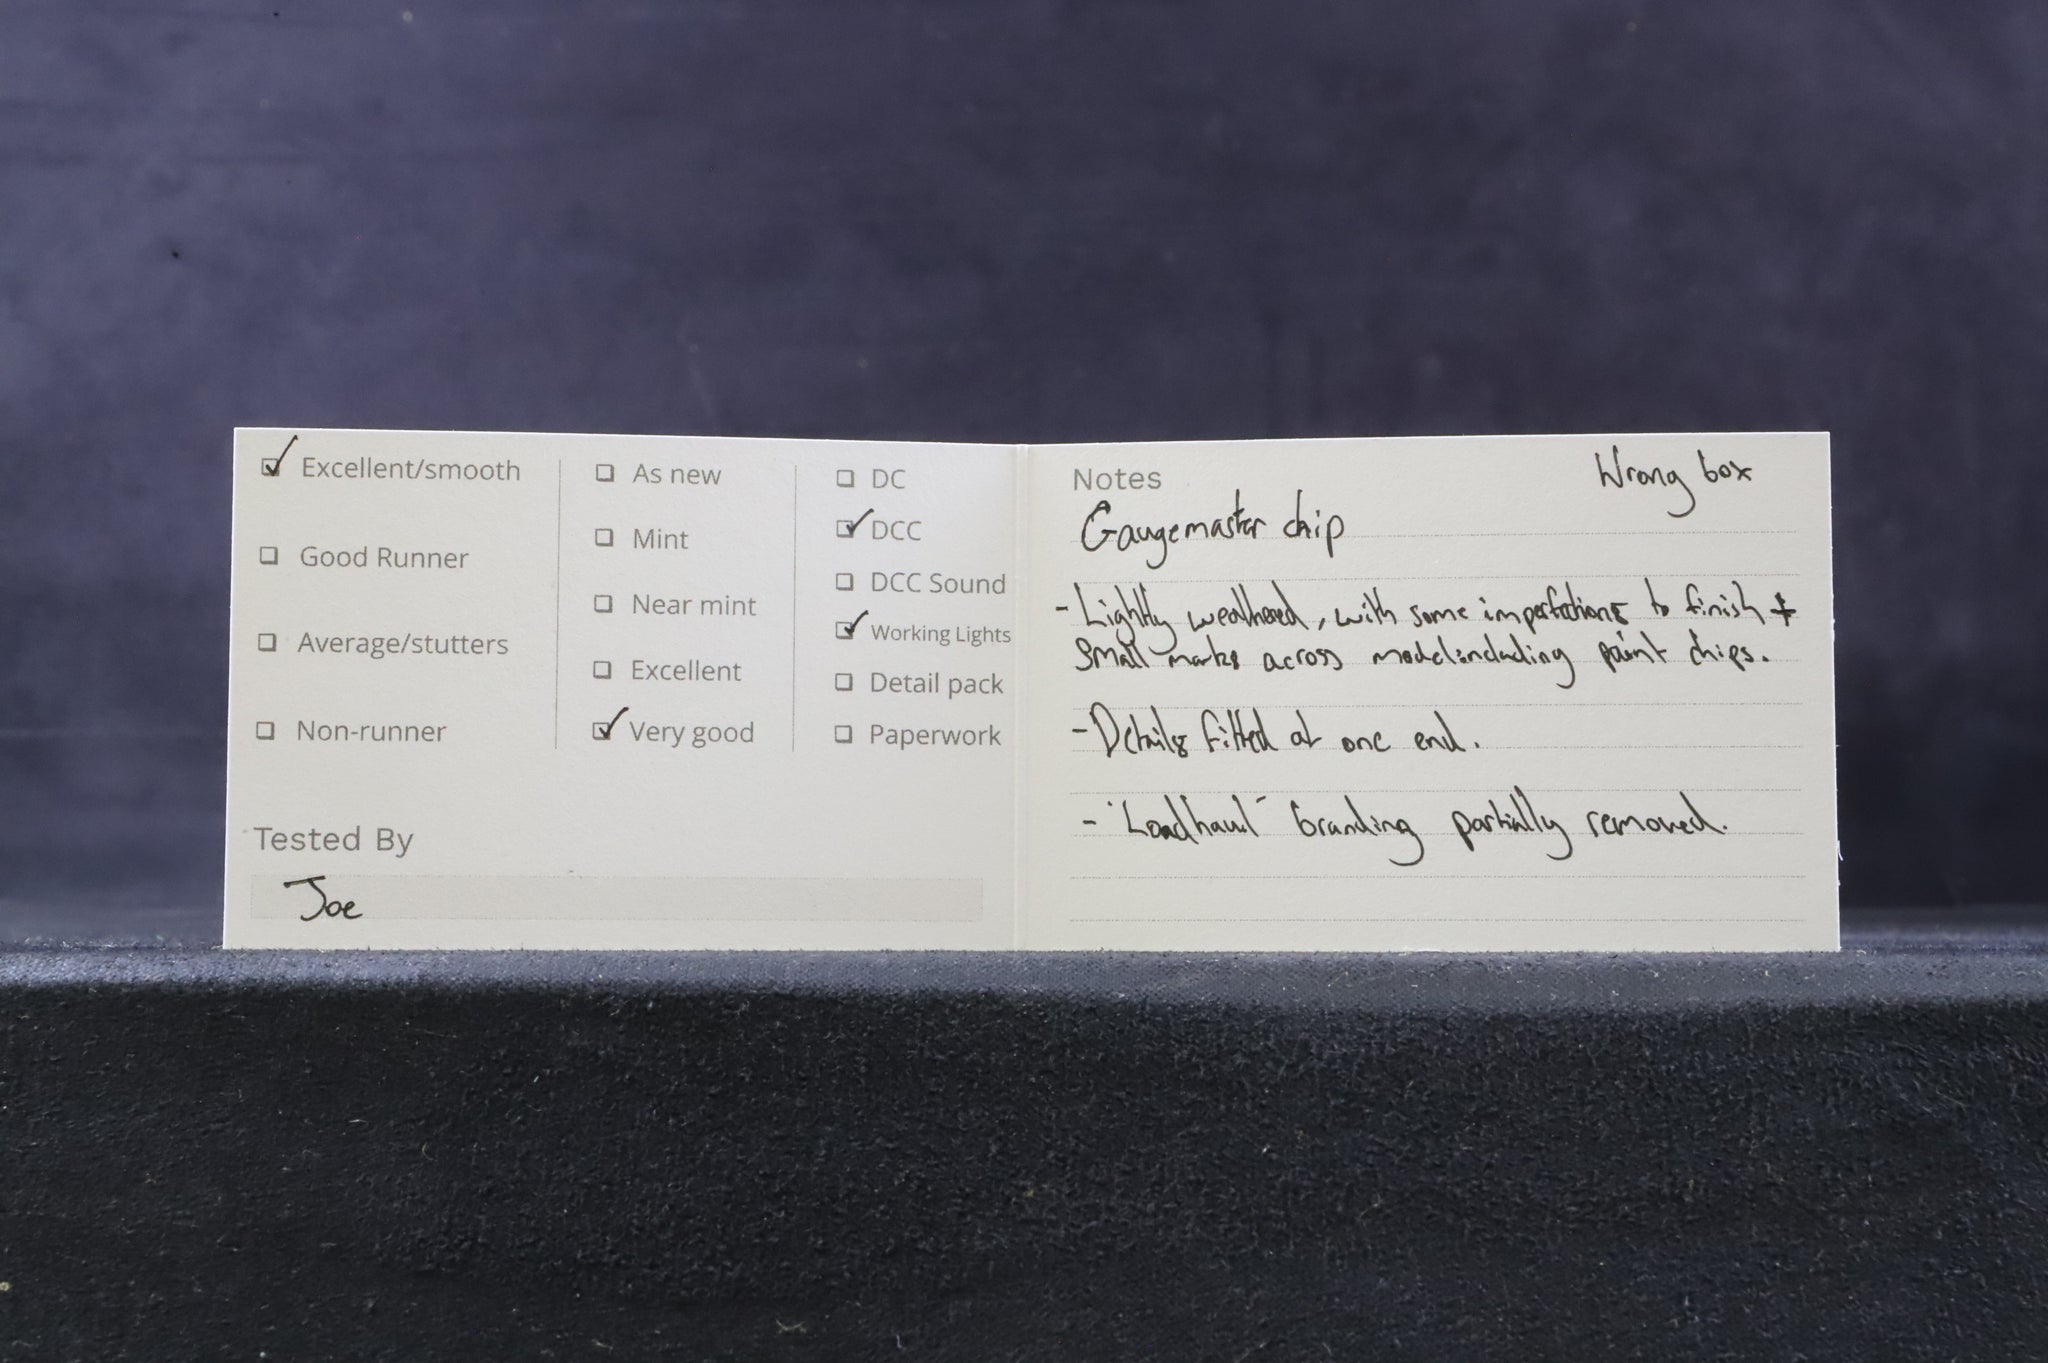 ☑ Excellent/smooth
☐ Good Runner
☐ Average/stutters
☐ Non-runner
☐ As new
☐ Mint
☐ Near mint
☐ Excellent
☑ Very good
☐ DC
☑ DCC
☐ DCC Sound
☑ Working Lights
☐ Detail pack
☐ Paperwork
Tested By
Joe
Notes
Wrong box
Gaugemaster chip
- Lightly weathered, with some imperfections to finish +
small marks across model including paint chips.
- Details fitted at one end.
- 'Loadhaul' branding partially removed.